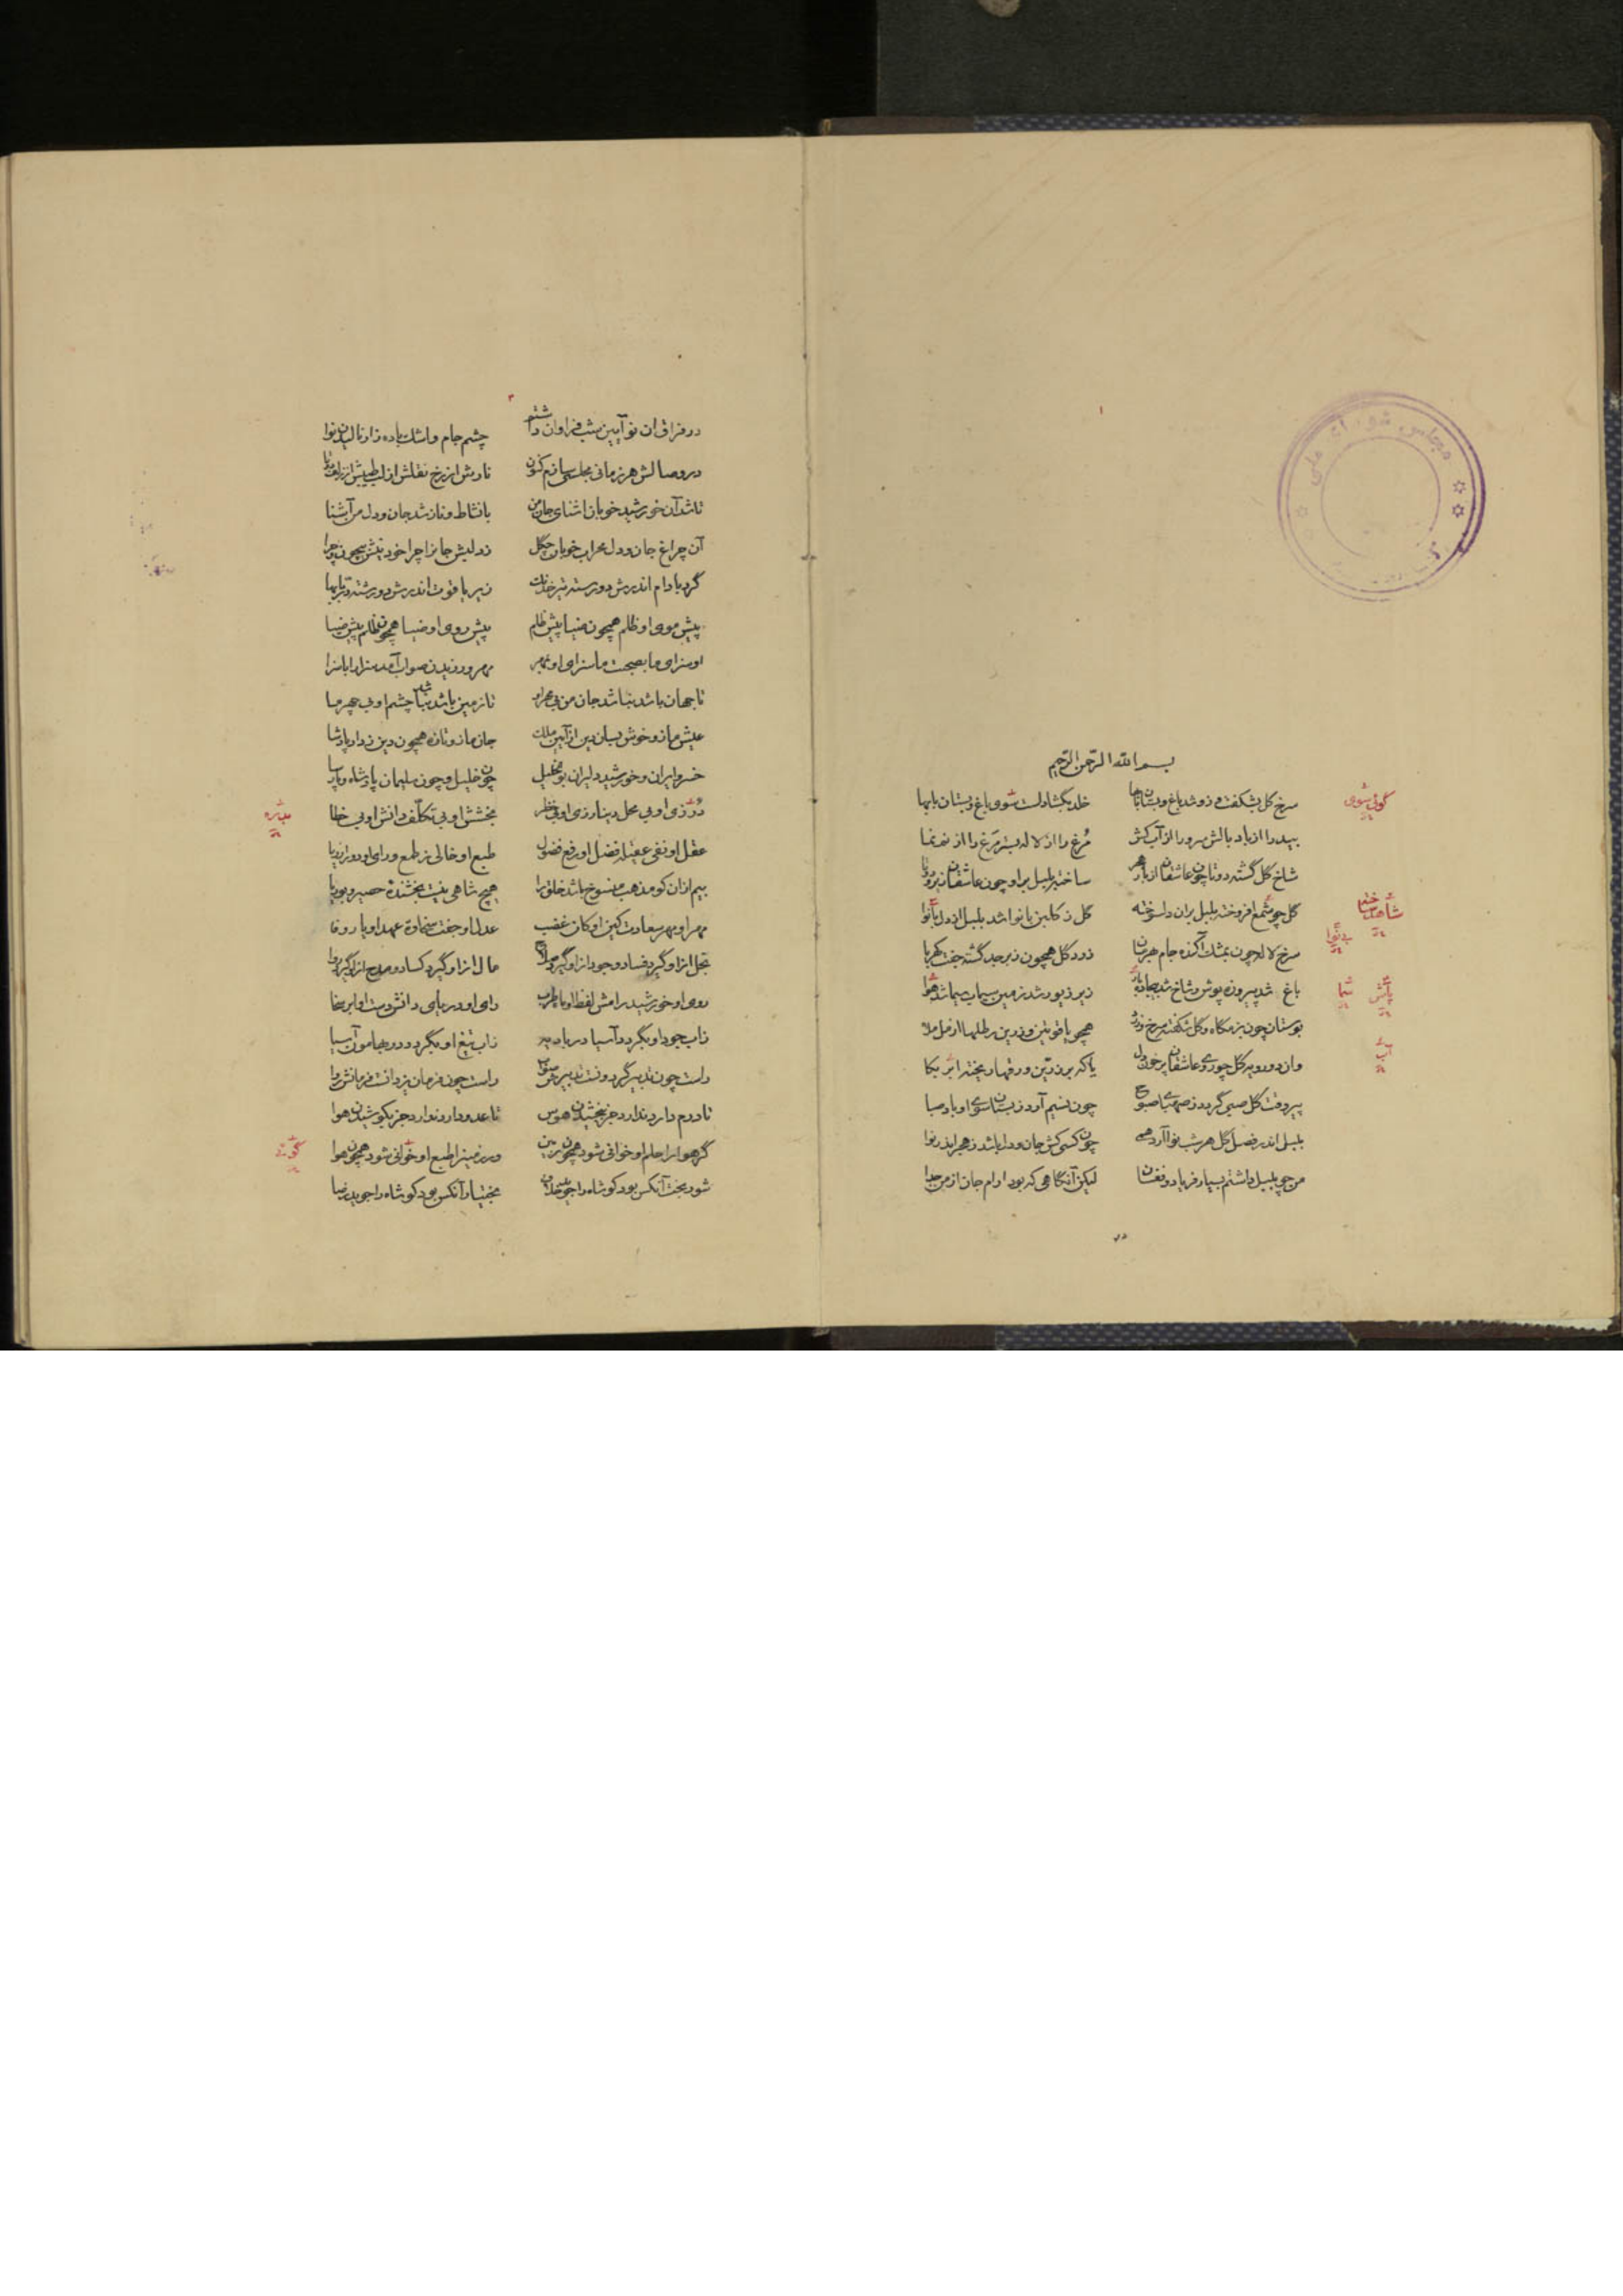 ۱
بسم الله الرحمن الرحیم
سرخ گل بشکفت و زو شد باغ و بستان بابها خلد بگشاد است گوئی سوی باغ و بستان بابها
بید را از باد بالش سرو را از آب کش مرغ را از لاله بستر مرغ را از
شاخ گل گشته دوتا چون عاشقان از بار هجر ساخته بلبل بر او چون عاشقان
گل چو شمع افروخته بلبل بر آن دلسوخته گل ز گلبن با نوا شد بلبل از دل بانوا
سرخ لاله چون بمشک آکنده جام زرد گل همچون زبرجد گشته جفت کهربا
باغ شد پیروزه پوش و شاخ شد زیر زیور شد زمین سیماب سیما شد هوا
بوستان چون بزمگاه و گل شکفته سرخ و زرد همچو یاقوتین و زرین رطلها از مل ملا
وان دو رویه گل چو روی عاشقان پر خون دل یا که بر زرین ورقها ریخته
پیر وقت گل صبی گردد ز صهبای صبوح چون نسیم آرد ز بستان سوی او باد صبا
بلبل اندر فصل گل هر شب نوا آرد همی چون کسی کش جان و دل باشد ز هجر اندر نوا
من چو بلبل داشتم بسیار فریاد و فغان لیکن آنگاهی که بود آرام جان از من جدا
گوئی سوی
ساخته
بی نوا
در
۲
در فراق آن نو آیین بت فراوان داشتم چشم جام و اشک باده زار نالیدن نوا
در وصالش هر زمانی مجلسی سازم کنون نارش از رخ نقلش از لب طیبش از زلف دوتا
تا شد آن خورشید خوبان آشنای جان من با نشاط و ناز شد جان و دل من آشنا
آن چراغ جان و دل محراب خوبان چگل
گرد بادام اندرش دو رسته تیر زیر یاقوت اندرش دو رشته در پربها
پیش موی او ظلم همچون ضیا پیش ظلم پیش روی او ضیا همچون ظلم پیش ضیا
او سزای ما بصحبت ما سزای او بمهر مهر ورزیدن صواب آمد سزا را با سزا
تا جهان باشد نباشد جان من بی مهر او تا زمین باشد نباشد چشم او بی چهر ما
عیش ما زو خوش بسان دین از آیین ملک جان ما زو تازه همچون دین ز داد پادشا
خسرو ایران و خورشید دلیران بو خلیل چون خلیل و چون سلیمان پادشاه و پارسا
بخشش او بی تکلف دانش او بی خطا
عقل او نفی عقیله فضل او رفع فضول طبع او خالی ز طمع و رای او دور از ریا
بیم از آن کو مذهب منسوخ باشد خلق را هیچ شاهی نیست بخشنده حصیر و بوریا
مهر او بهر سعادت کین او کان غضب عدل او جفت سخاوت عهد او یار وفا
بخل از او گیرد فساد و جود از او گیرد صلاح مال از او گیرد کساد و مدح از او گیرد روا
روی او خورشید رامش لفظ او یار طرب رای او دریای دانش دست او ابر سخا
زاب جود او بگردد آسیا در بادیه زاب تیغ او بگردد در هامون آسیا
راست چون تدبیر گردونست تدبیرش راست چون فرمان یزدانست فرمانش روا
تا درم دارد ندارد جز ببخشیدن هوس تا عدو دارد ندارد جز بکوشیدن هوا
گر هوا را حلم او خوانی شود همچون زمین ور زمین را طبع او خوانی شود همچون هوا
شور بخت آنکس بود کو شاه را جوید خلاف بختیار آنکس بود کو شاه را جوید رضا
مجلس شورای ملی